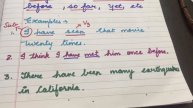 before, so far, yet, etc
Examples :-
Sub V3
I have seen that movie
twenty times.
2. I think I have met him once before.
3. There have been many earthquakes
in California.